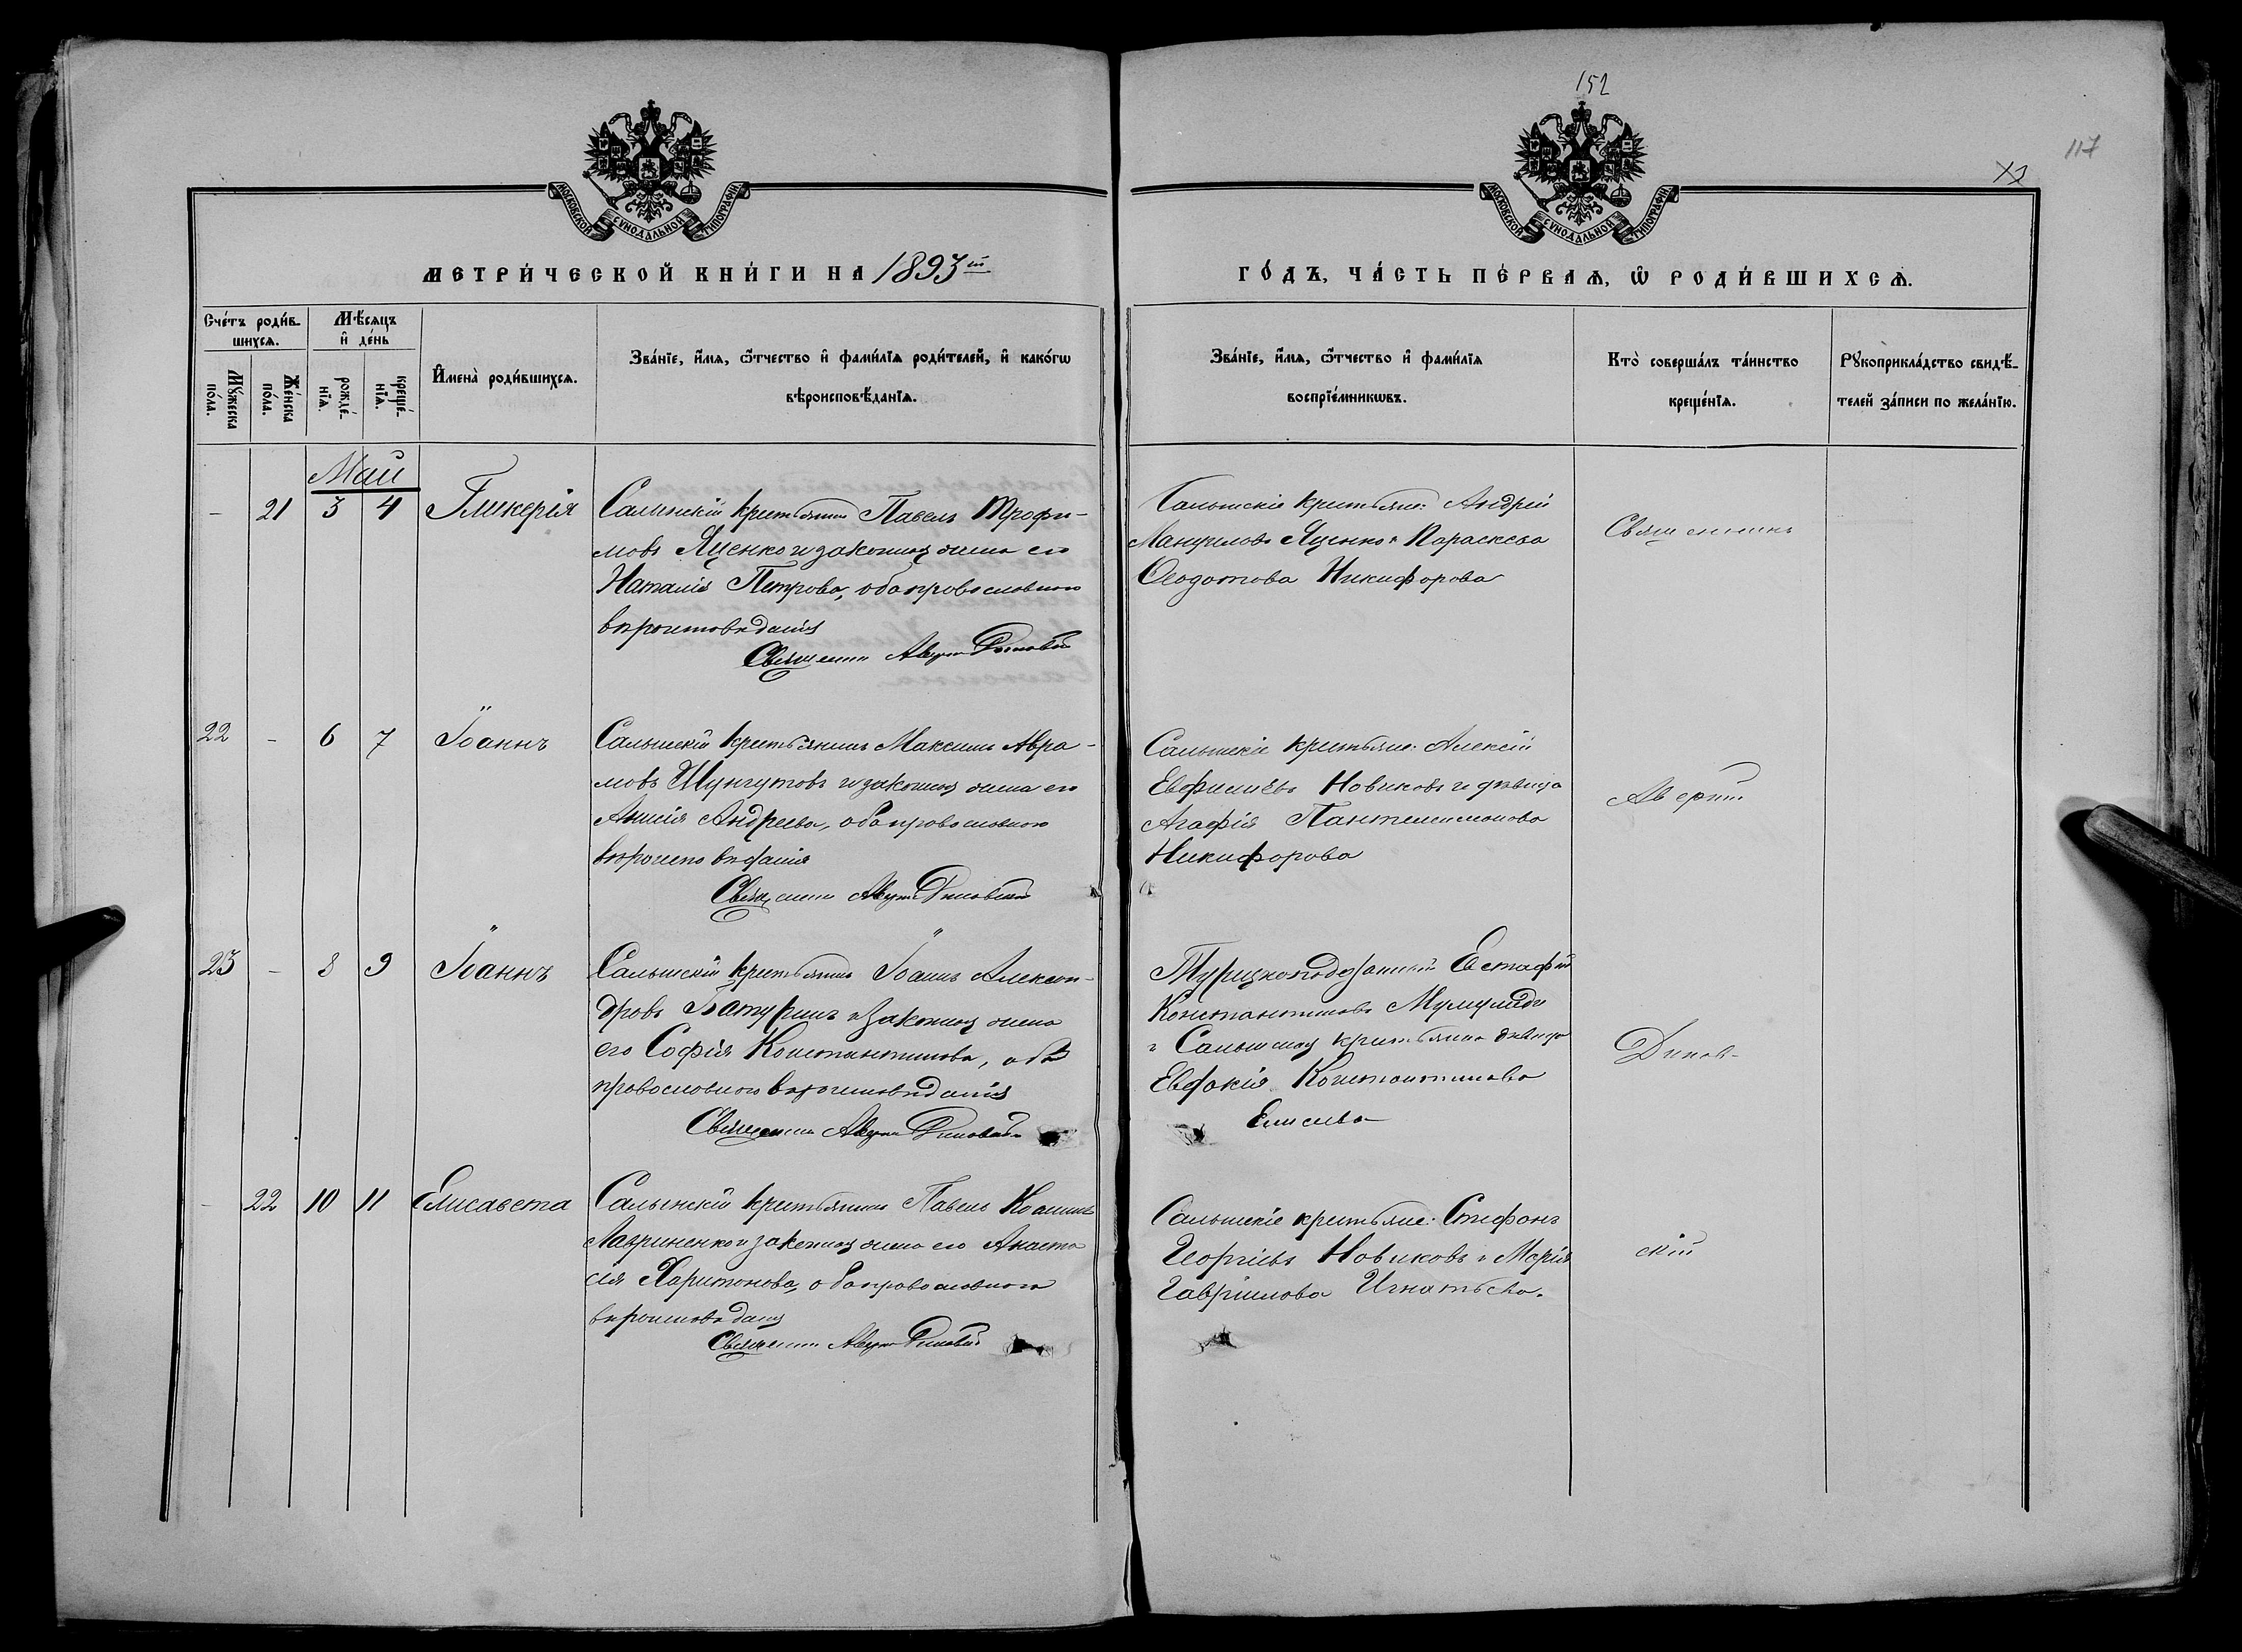 152
117
МОСКОВСКОЙ СУНОДАЛЬНОЙ ТИПОГРАФІИ
МОСКОВСКОЙ СУНОДАЛЬНОЙ ТИПОГРАФІИ
МЕТРИ́ЧЕСКОЙ КНИ́ГИ НА 1893й
ГО́ДЪ, ЧА́СТЬ ПЕ́РВАѦ, Ѡ РОДИ́ВШИХСѦ.
Сче́тъ роди́в-
шихсѧ.
Мꙋ́жеска по́ла.
Же́нска по́ла.
Мѣ́сѧцъ
и де́нь
рожде́-
нїѧ.
креще́-
нїѧ.
Имена̀ роди́вшихсѧ.
Зва́нїе, и́мѧ, ѻ́тчество и фами́лїѧ роди́телей, и како́гѡ
вѣроисповѣ́данїѧ.
Зва́нїе, и́мѧ, ѻ́тчество и фами́лїѧ
воспрїе́мникѡвъ.
Кто̀ соверша́лъ та́инство
креще́нїѧ.
Рꙋкоприкла́дство свидѣ́-
телей за́писи по жела́нїю.
Май
- 21 3 4 Гликерія
Салынскій крестьянинъ Павелъ Трофи-
мовъ Яценко и законная жена его
Наталія Петрова, оба православнаго
вѣроисповѣданія
Священникъ Диновскій
крестьяне: Андрей
Мануиловъ Яценко и Параскева
Ѳеодотова Никифорова
Священникъ
22 - 6 7 Іоаннъ
крестьянинъ Максимъ Авра-
мовъ и законная жена его
Анисія Андреева, оба православнаго
вѣроисповѣданія
Священникъ Диновскій
крестьяне: Алексій
Новиковъ и дѣвица
Агафія Пантелеимонова
Никифорова
23 - 8 9 Іоаннъ
крестьянинъ Іоаннъ Алексан-
дровъ Батуринъ и законная жена
его Софія Константинова, оба
православнаго вѣроисповѣданія
Священникъ Диновскій
Турецкоподданный Евстафій
Константиновъ
и крестьянка дѣвица
Евдокія Константинова
Динов-
- 22 10 11 Елисавета
Салынскій крестьянинъ Павелъ
Лавриненко и законная жена его Анаста
сія Харитонова, оба православнаго
вѣроисповѣданія
Священникъ Диновскій
крестьяне: Стефанъ
Георгіевъ Новиковъ и Марія
Гавріилова Игнатьева.
скій